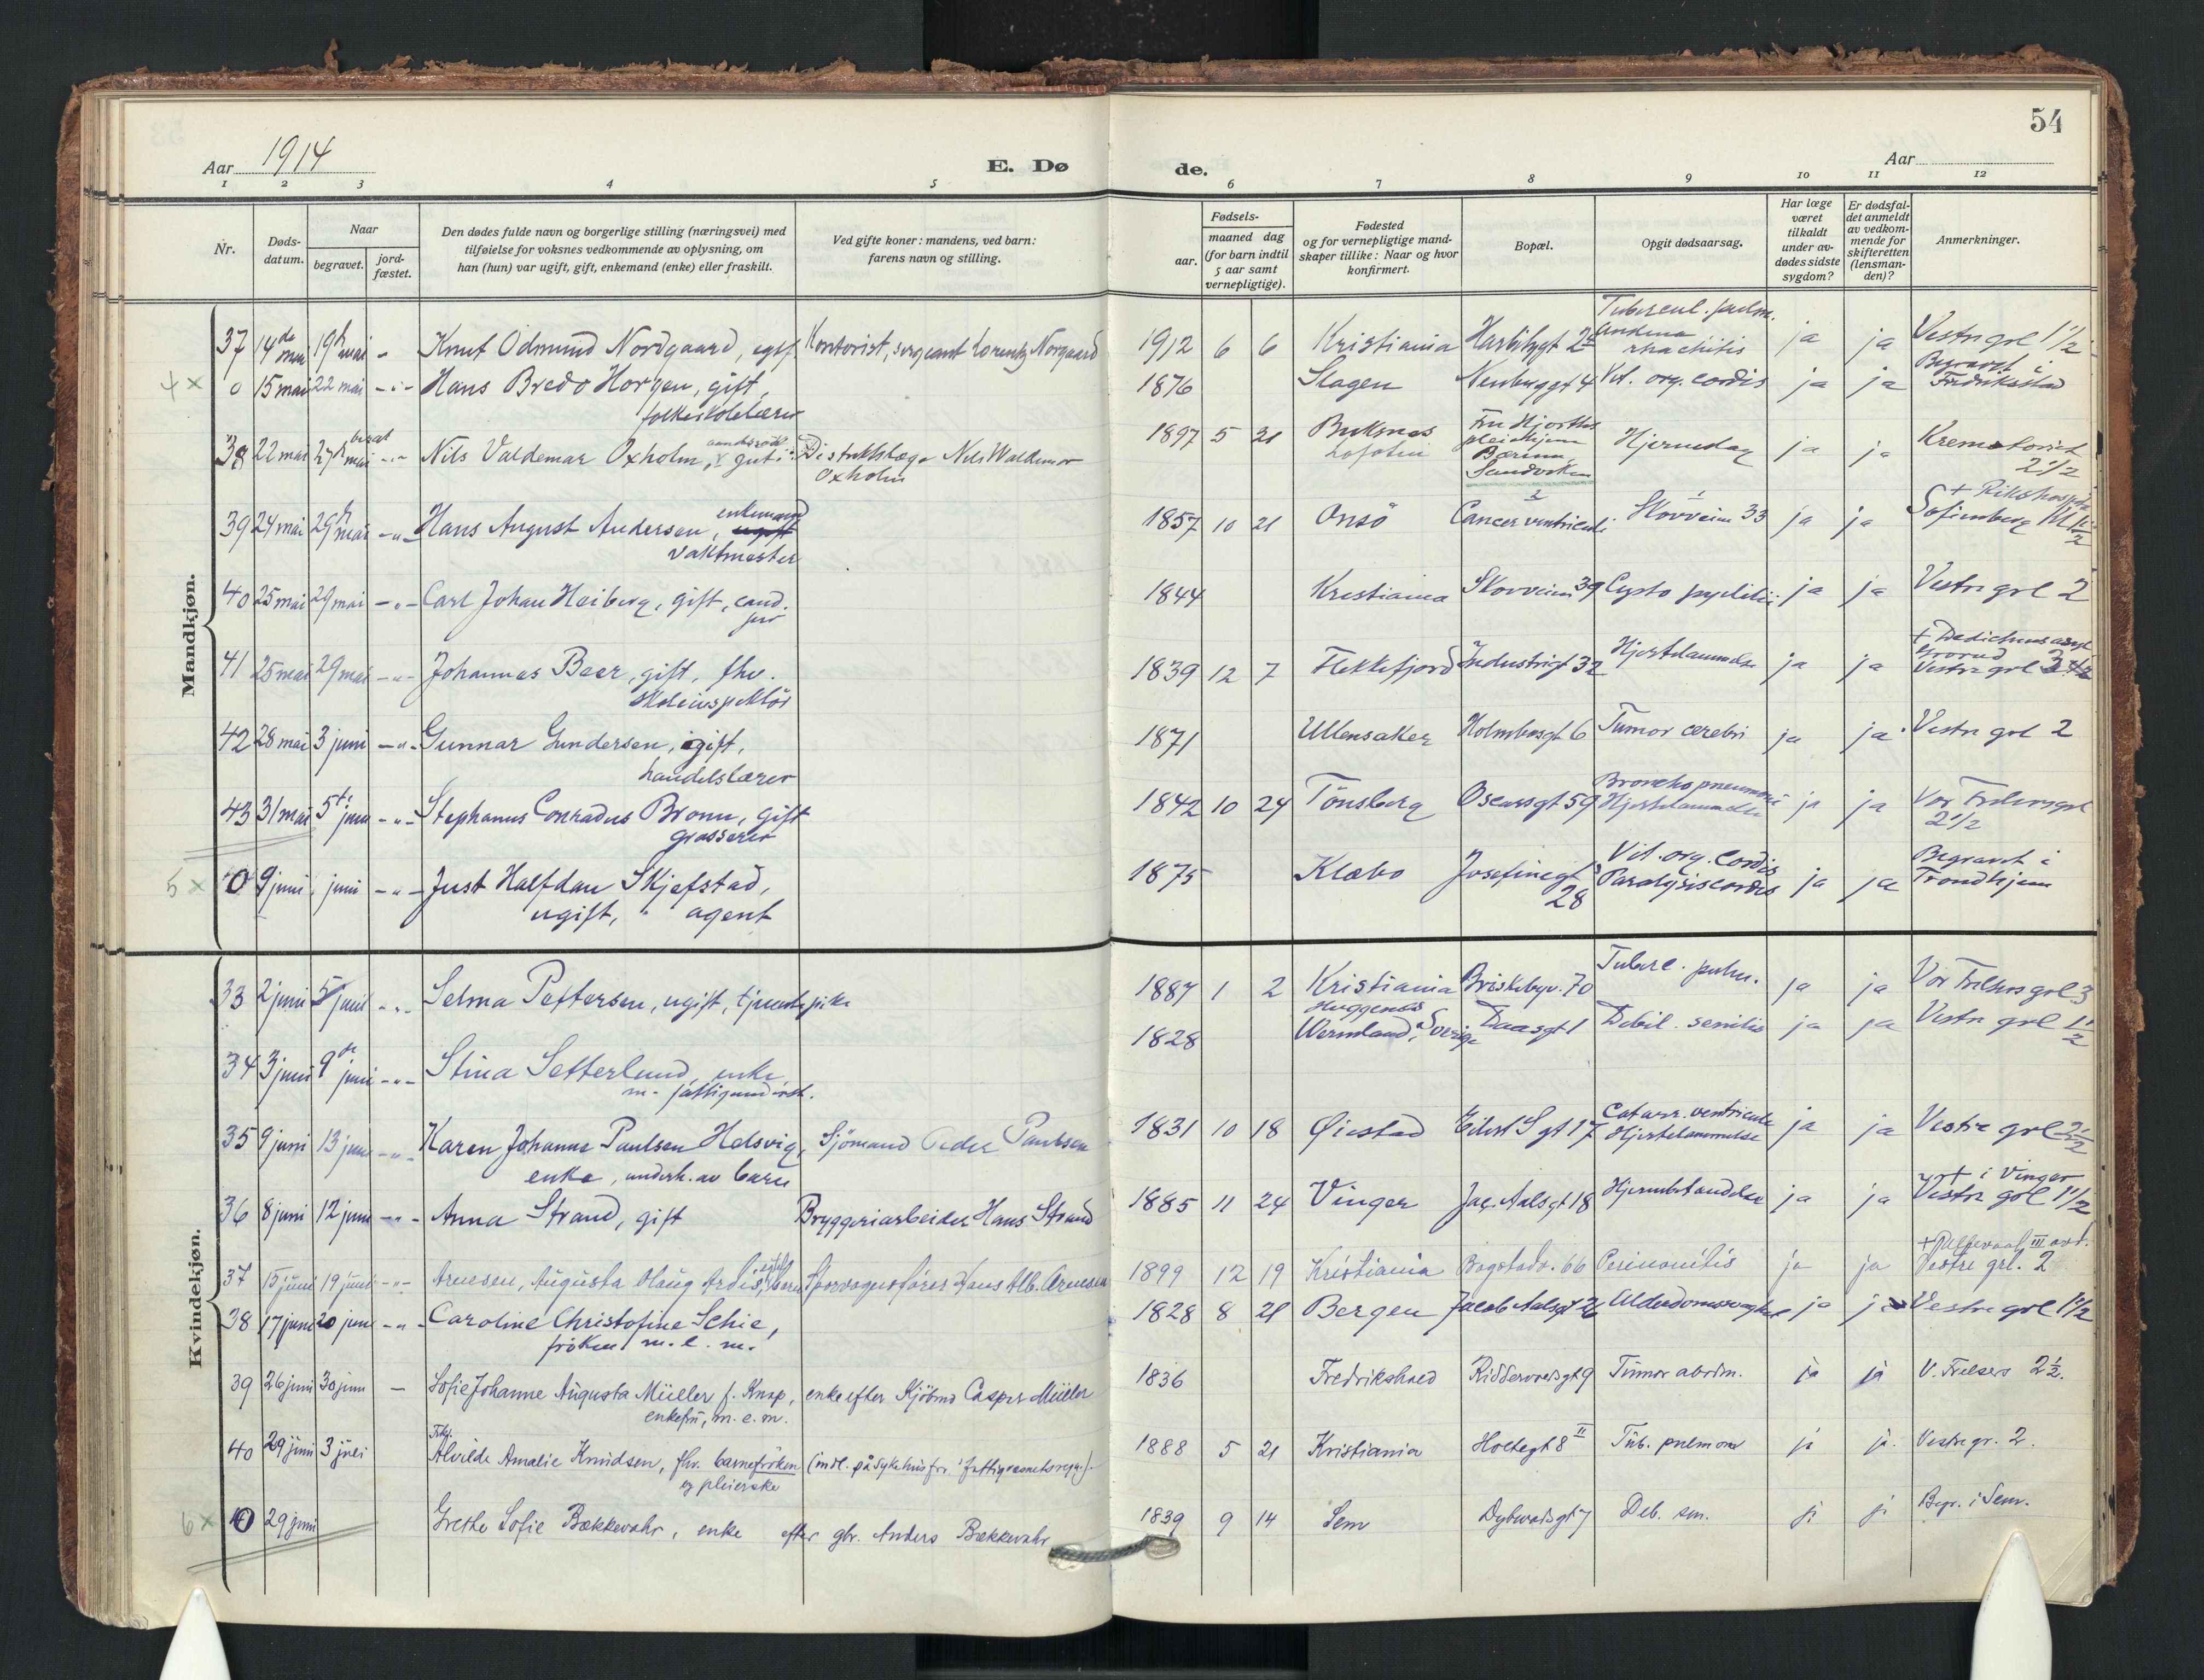 54
Aar 1914
E. Døde.
Aar
1 2 3 4 5 6 7 8 9 10 11 12
Nr.
Døds-datum.
Naar
begravet.
jord-fæstet.
Den dødes fulde navn og borgerlige stilling (næringsvei) med
tilføielse for voksnes vedkommende av oplysning, om
han (hun) var ugift, gift, enkemand (enke) eller fraskilt.
Ved gifte koner: mandens, ved barn:
farens navn og stilling.
Fødsels-
aar.
maaned dag
(for barn indtil
5 aar samt
vernepligtige).
Fødested
og for vernepligtige mand-
skaper tillike: Naar og hvor
konfirmert.
Bopæl.
Opgit dødsaarsag.
Har læge
været
tilkaldt
under av-
dødes sidste
sygdom?
Er dødsfal-
det anmeldt
av vedkom-
mende for
skifteretten
(lensman-
den)?
Anmerkninger.
Mandkjøn.
37 14de mai 19 mai - Knut Odmund Nordgaard, Kontorist, sergeant Lorentz Norgaard 1912 6 6 Kristiania Tubercul. pulm. rhachitis ja ja Vestre grl 1½
4 x 0 15 mai 22 mai -"- Hans Bredo Horgen, gift, folkeskolelærer 1876 Slagen Neuberggt 4 Vit. org. cordis ja ja Begravet i Fredriksstad
38 22 mai 27 mai -"- Nils Valdemar Oxholm, Distriktslæge Nils Waldemar Oxholm 1897 5 21 Buksnes Lofoten Fru Hjorths pleiehjem Bærum Sandviken ja ja Krematoriet 2½
39 24 mai 29 mai -"- Hans August Andersen, enkemand vaktmester 1857 10 21 Onsö Cancer ventriculi Skovveien 33 ja ja + Rikshosp. Sofienberg
40 25 mai 29 mai -"- Carl Johan Heiberg, gift, cand. jur 1844 Kristiania Skovveien 39 Cysto pyelitis ja ja Vestre grl 2
41 25 mai 29 mai -"- Johannes Beer, gift, fhv. skoleinspektör 1839 12 7 Flekkefjord Industrigt 32 Hjertelammelse ja ja + Dedichens asyl Vestre grl
42 28 mai 3 juni -"- Gunnar Gundersen, gift, handelslærer 1871 Ullensaker Holmboesgt 6 Tumor cerebri ja ja Vestre grl 2
43 31 mai 5te juni -"- Stephanus Conradus Bronn, gift grosserer 1842 10 24 Tönsberg Oscarsgt 59 Bronchopneumoni Hjertelammelse ja ja Vor Frelsers grl 2½
5 x 0 9 juni juni -"- Just Halfdan Skjefstad, ugift, agent 1875 Klæbo Josefinegt 28 Vit. org. cordis Paralysis cordis ja ja Begravet i Trondhjem
Kvindekjøn.
33 2 juni 5 juni -"- Selma Pettersen, ugift, tjenestepike 1887 1 2 Kristiania Briskebyv. 70 Tuberc. pulm. ja ja Vor Frelsers grl 3
34 3 juni 9 juni -"- Stina Setterlund, enke m. fattigunderst. 1828 Huggenäs Wermland, Sverige Daasgt 1 Debil. senilis ja ja Vestre grl 1½
35 9 juni 13 juni -"- Karen Johanne Paulsen Helsvig, enke, underh. av barn Sjömand Peder Paulsen 1831 10 18 Øiestad Eilert S gt 17 Catarr. ventricule Hjertelammelse ja ja Vestre grl 2½
36 8 juni 12 juni -"- Anna Strand, gift Bryggeriarbeider Hans Strand 1885 11 24 Vinger Jac. Aalsgt 18 Hjernebetændelse ja ja + i Vinger Vestre grl 1½
37 15 juni 19 juni -"- Arnesen, Augusta Olaug Ardis, barn Sporvognsfører Hans Alb. Arnesen 1899 12 19 Kristiania Bogstadv. 66 Peritonitis ja ja + Ullevaal III avd. Vestre grl. 2
38 17 juni 20 juni -"- Caroline Christofine Schie, fröken m. e. m. 1828 8 21 Bergen Jacob Aalsgt 26 Alderdomssvaghed ja ja Vestre grl 1½
39 26 juni 30 juni - Sofie Johanne Augusta Müller f. Knap, enkefru, m. e. m. enke efter Kjöbmd Casper Müller 1836 Fredrikshald Riddervoldsgt 9 Tumor abdm. ja ja V. Frelsers 2½.
40 29 juni 3 juli Frk. Alvilde Amalie Knudsen, fhv. barnefröken og pleierske (indl. på Sykehus fr. fattigvæsnets regn.). 1888 5 21 Kristiania Holtegt 8 II Tub. pulmon ja ja. Vestre gr. 2.
6 x 0 29 juni Grethe Sofie Bækkevahr, enke efter gbr. Anders Bækkevahr 1839 9 14 Sem Dybwadsgt 7 Deb. sen. ja ja Begr. i Sem.